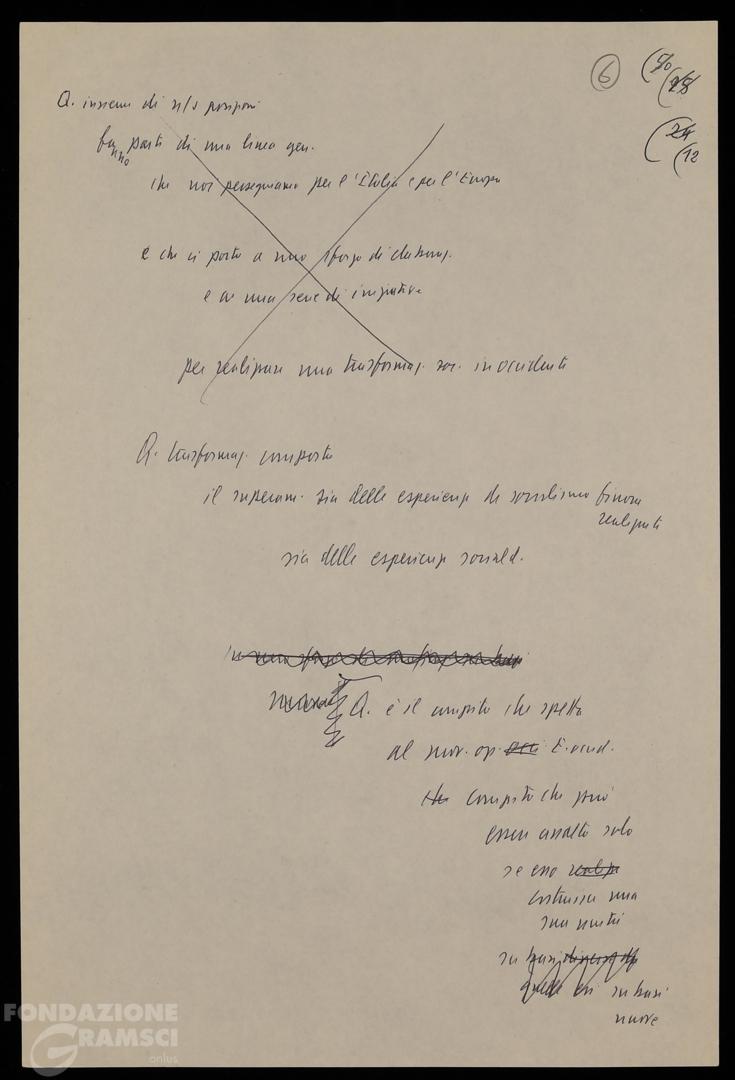 6
Q. insieme di n/s posizioni
fanno parte di una linea gen.
che noi perseguiamo per l'Italia e per l'Europa
e che ci porta a uno sforzo di elaboraz.
e a una serie di iniziative
per realizzare una trasformaz. soc. in occidente
Q. trasformaz. comporta
il superam. sia delle esperienze di socialismo finora
realizzate
sia delle esperienze sociald.
in una
nuova Q. è il compito che spetta
al mov. op. E. occid.
compito che può
essere assolto solo
se esso
costruisce una
sua unità
su basi
su basi
nuove
(12
FONDAZIONE
GRAMSCI
onlus